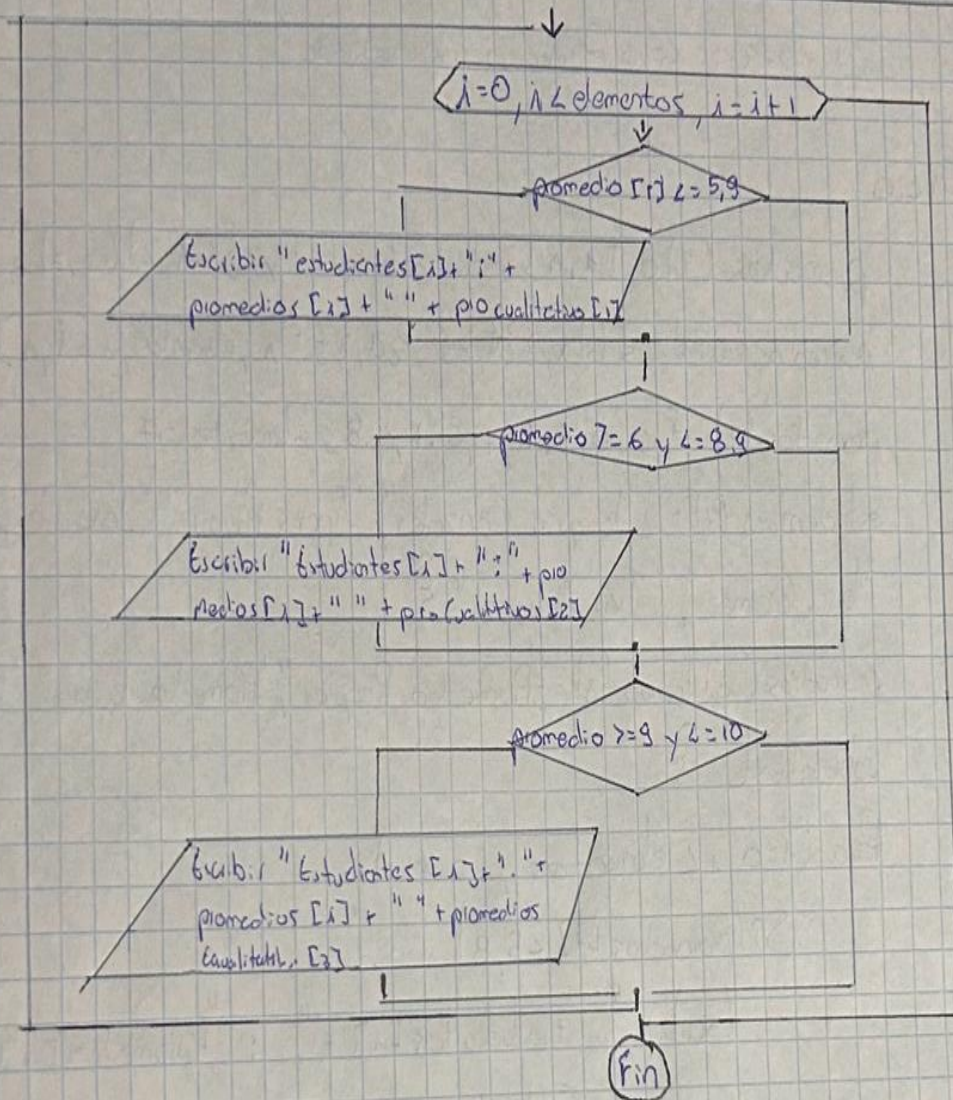 i=0, i < elementos, i=i+1
promedio [i] <= 5,9
Escribir "estudiantes[i]+ ";" +
promedios [i] + " " + procualitativo [1]
promedio >= 6 y <= 8,9
Escribir "Estudiantes [i] + ":" + pro
medios[i]+ " " + procualitativos [2]
promedio >=9 y <=10
Escribir "Estudiantes [i]+ "." +
promedios [i] + " " + promedios
[3]
Fin